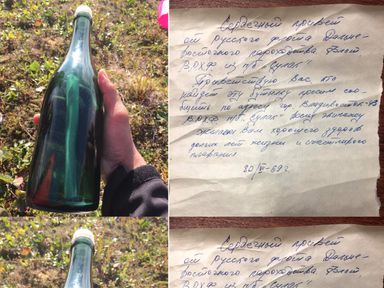 Сердечный привет
от Русского флота Дальне-
восточного пароходства. Флот
ВРХФ из п/б "Сулак"
Приветствую Вас, кто
найдет эту бутылку просим соо-
бщить по адресу гор Владивосток-43
ВРХФ п/б "Сулак" всему экипажу
желаем Вам хорошего здоровья
долгих лет жизни и счастливого
плавания.
20/VI-69 г.
Сердечный привет
от Русского флота Дальне-
восточного пароходства. Флот
ВРХФ из п/б "Сулак"